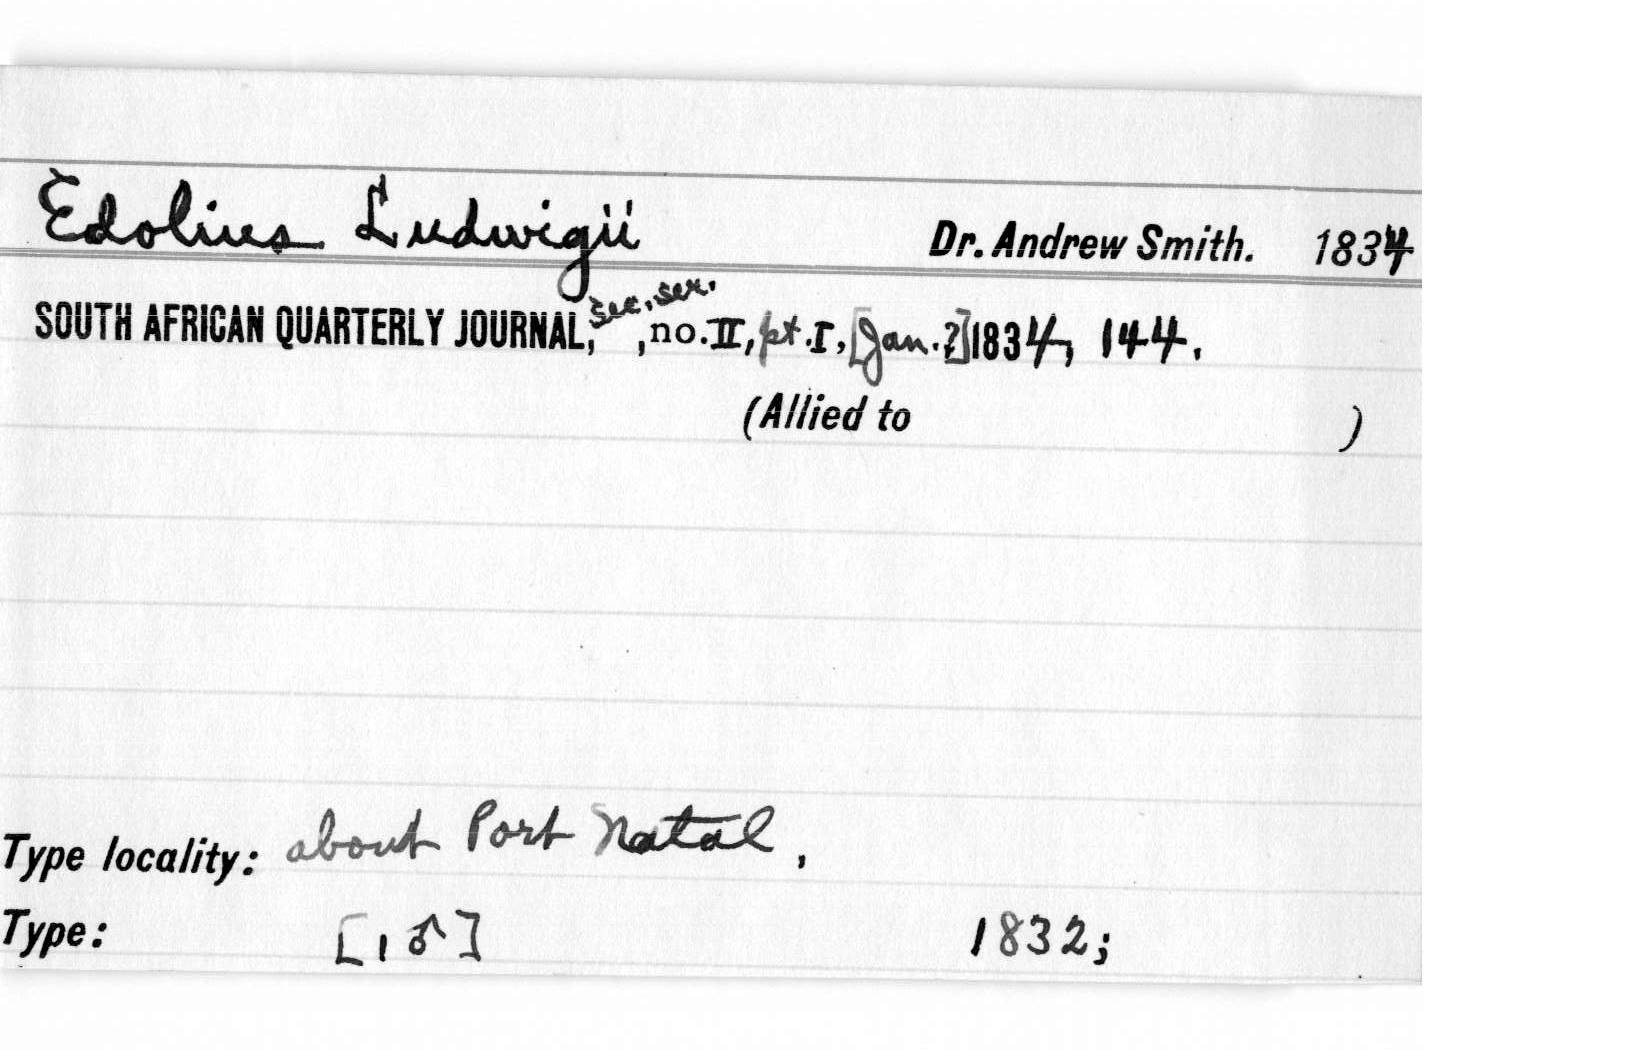 Edolius Ludwigii Dr. Andrew Smith. 1834
SOUTH AFRICAN QUARTERLY JOURNAL, sec. ser. , no. II, pt. I, [Jan.?] 1834, 144.
(Allied to )
Type locality: about Port Natal,
Type: [1 ♂] 1832;